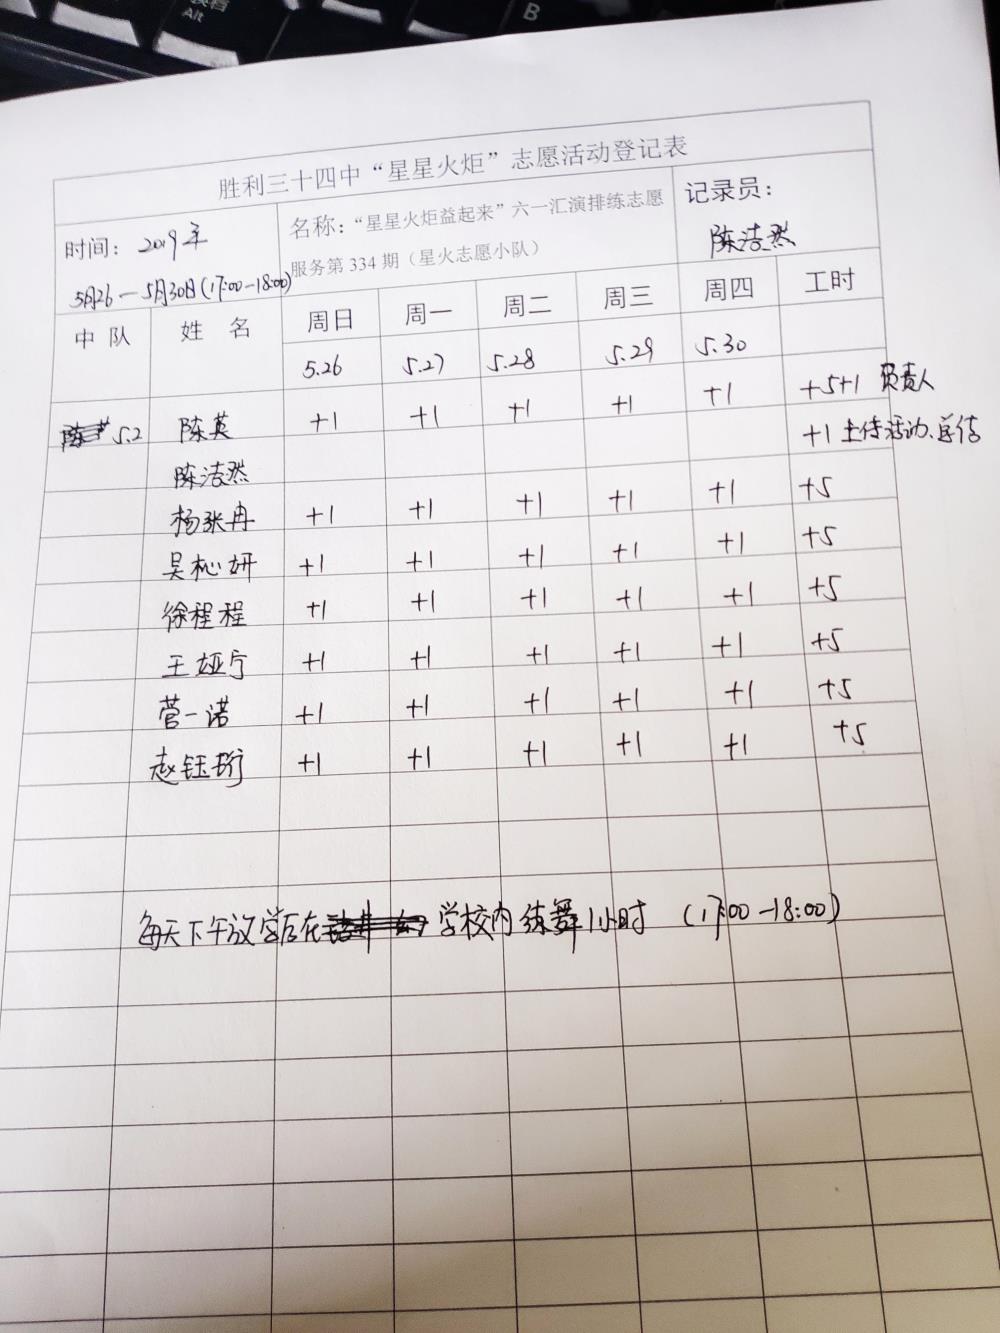 胜利三十四中“星星火炬”志愿活动登记表
时间：2019年
5月26—5月30日(17:00-18:00)
名称：“星星火炬益起来”六一汇演排练志愿
服务第334期（星火志愿小队）
记录员：
陈洁然
中队 姓名 周日 周一 周二 周三 周四 工时
5.26 5.27 5.28 5.29 5.30
5.2 陈英 +1 +1 +1 +1 +1 +5+1 负责人
陈洁然 +1 主传活动、宣传
杨张冉 +1 +1 +1 +1 +1 +5
吴杺妍 +1 +1 +1 +1 +1 +5
徐程程 +1 +1 +1 +1 +1 +5
王娅宁 +1 +1 +1 +1 +1 +5
菅一诺 +1 +1 +1 +1 +1 +5
赵钰珩 +1 +1 +1 +1 +1 +5
每天下午放学后在学校内练舞1小时 (17:00-18:00)